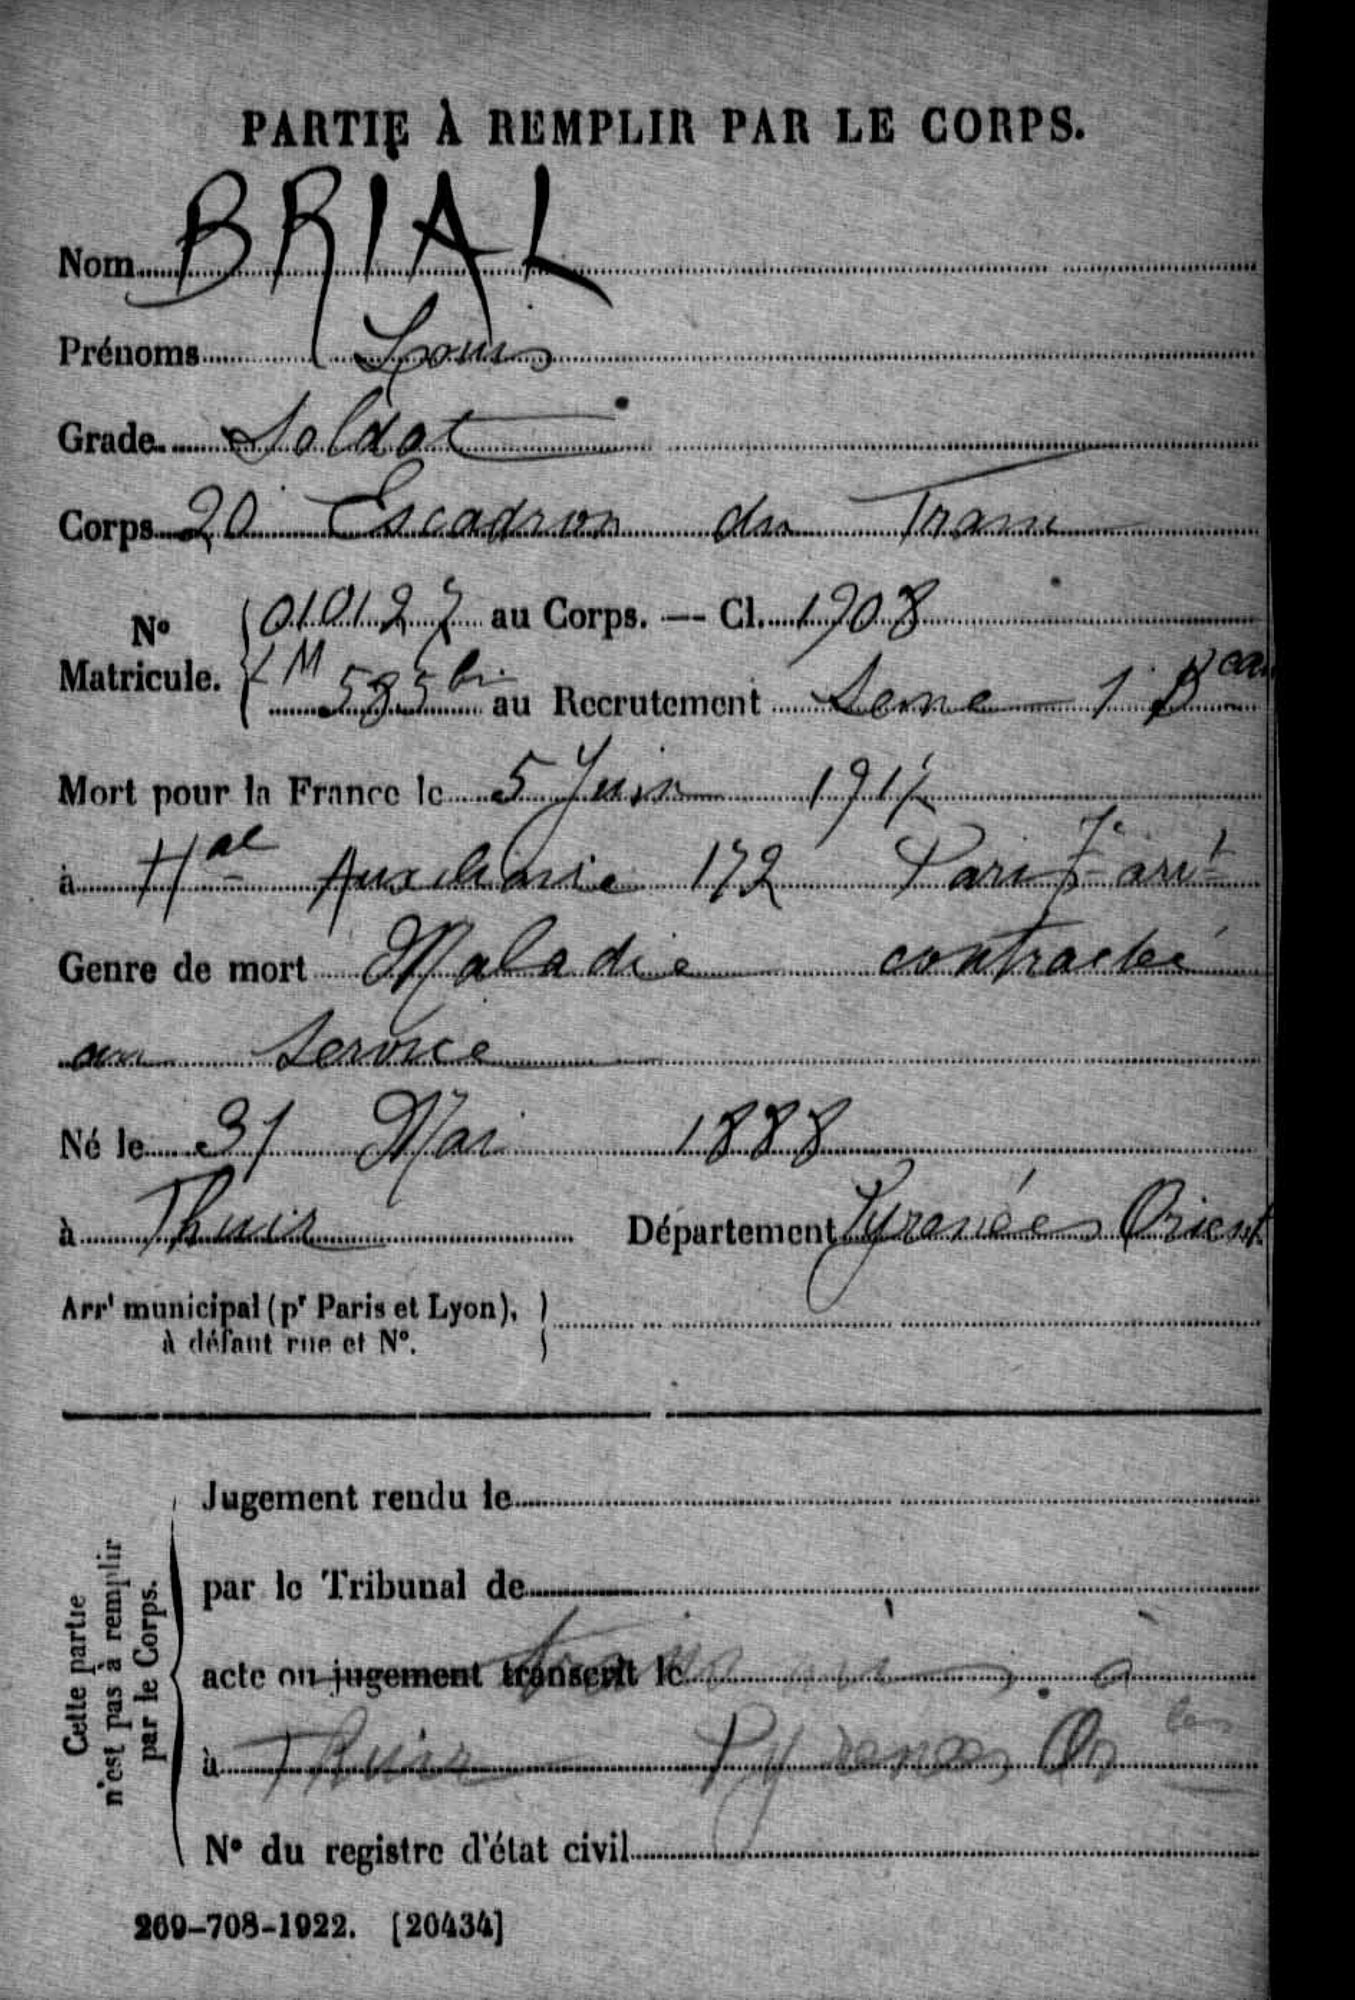 PARTIE À REMPLIR PAR LE CORPS.
Nom BRIAL
Prénoms Louis
Grade Soldat
Corps 20 Escadron du Train
N° Matricule. 010127 au Corps. — Cl. 1908
LM 585 bis au Recrutement Seine 1 Beau
Mort pour la France le 5 Juin 1917
à Hal Auxiliaire 172 Paris 7e arrt
Genre de mort Maladie contractée
au Service
Né le 31 Mai 1888
à Thuir Département Pyrénées Orient.
Arrt municipal (pr Paris et Lyon),
à défaut rue et N°.
Cette partie
n'est pas à remplir
par le Corps.
Jugement rendu le
par le Tribunal de
acte ou jugement transcrit le
à Thuir Pyrénées Or les
N° du registre d'état civil
269-708-1922. [20434]